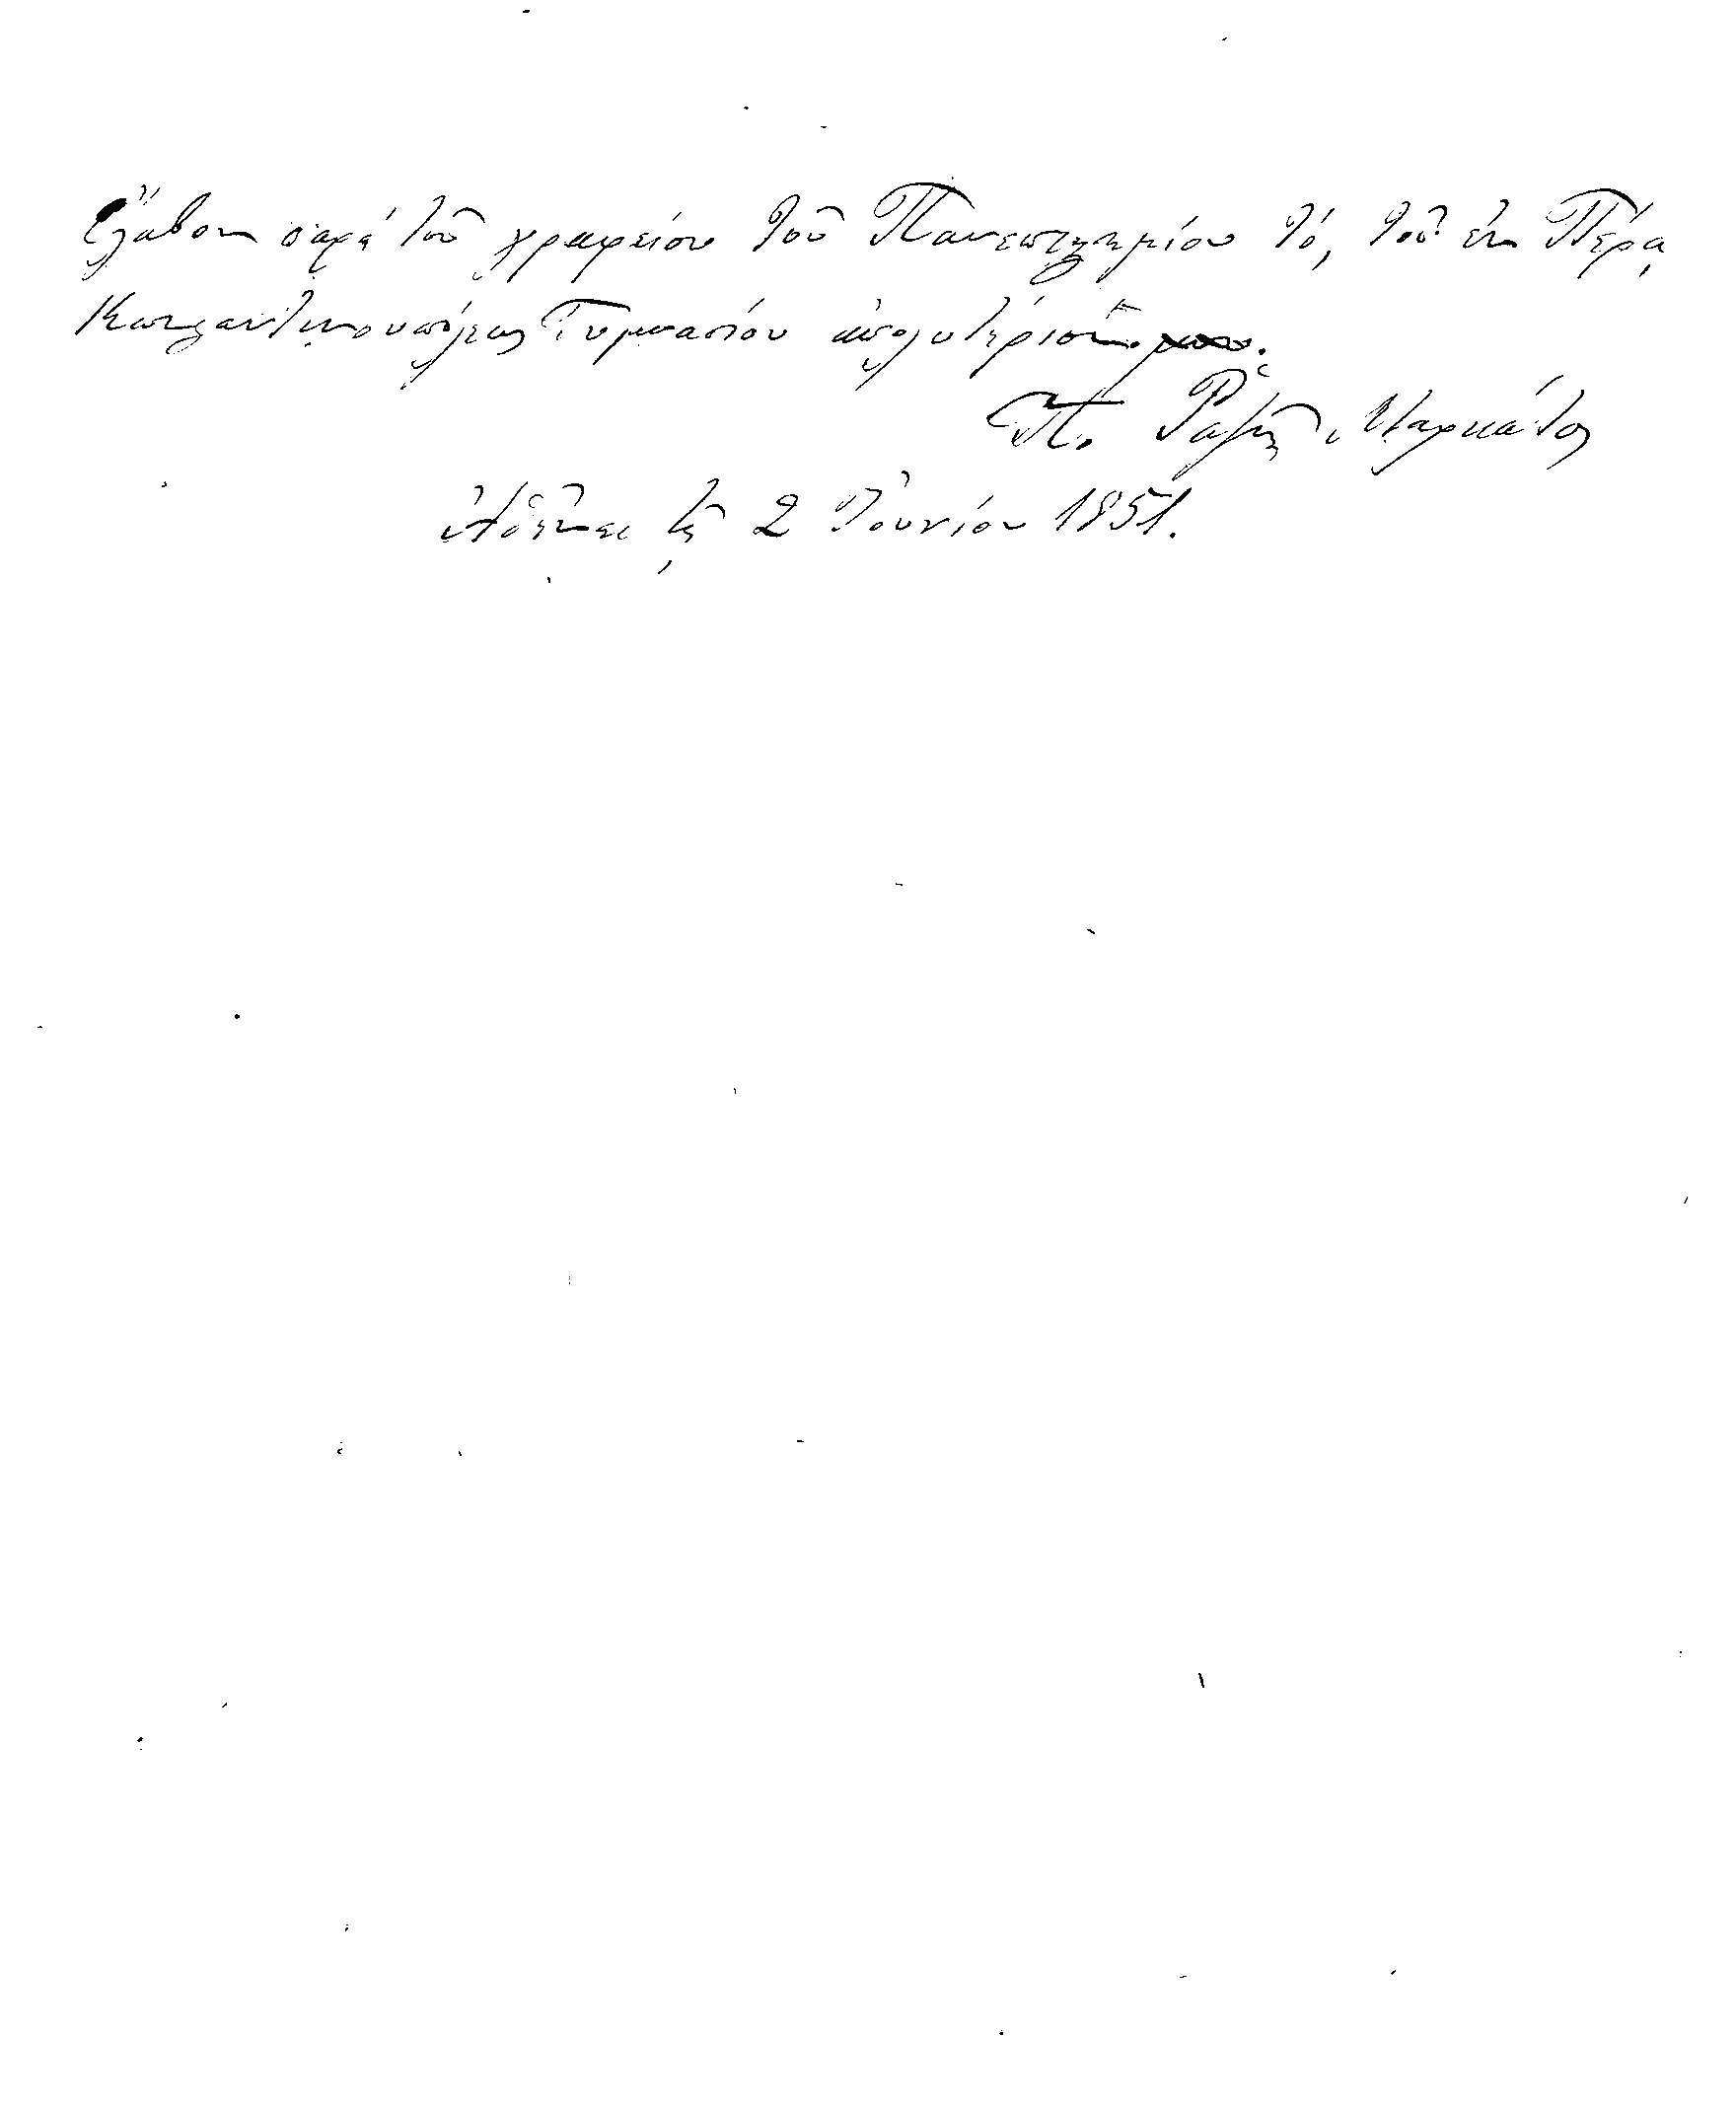 Ἔλαβον παρά τοῦ γραφείου τοῦ Πανεπιστημίου τό, τοῦ ἐν Πέρᾳ
Κωνσταντινουπόλεως Γυμνασίου ἀπολυτήριόν μου.
Π. Ῥαζῆς
Ἀθῆναι τῇ 2 Ἰουνίου 1851.